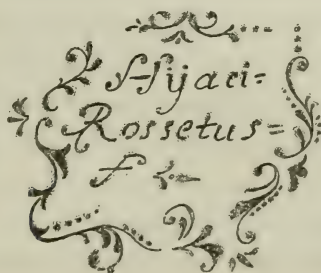 Hyaci=
Rossetus=
f